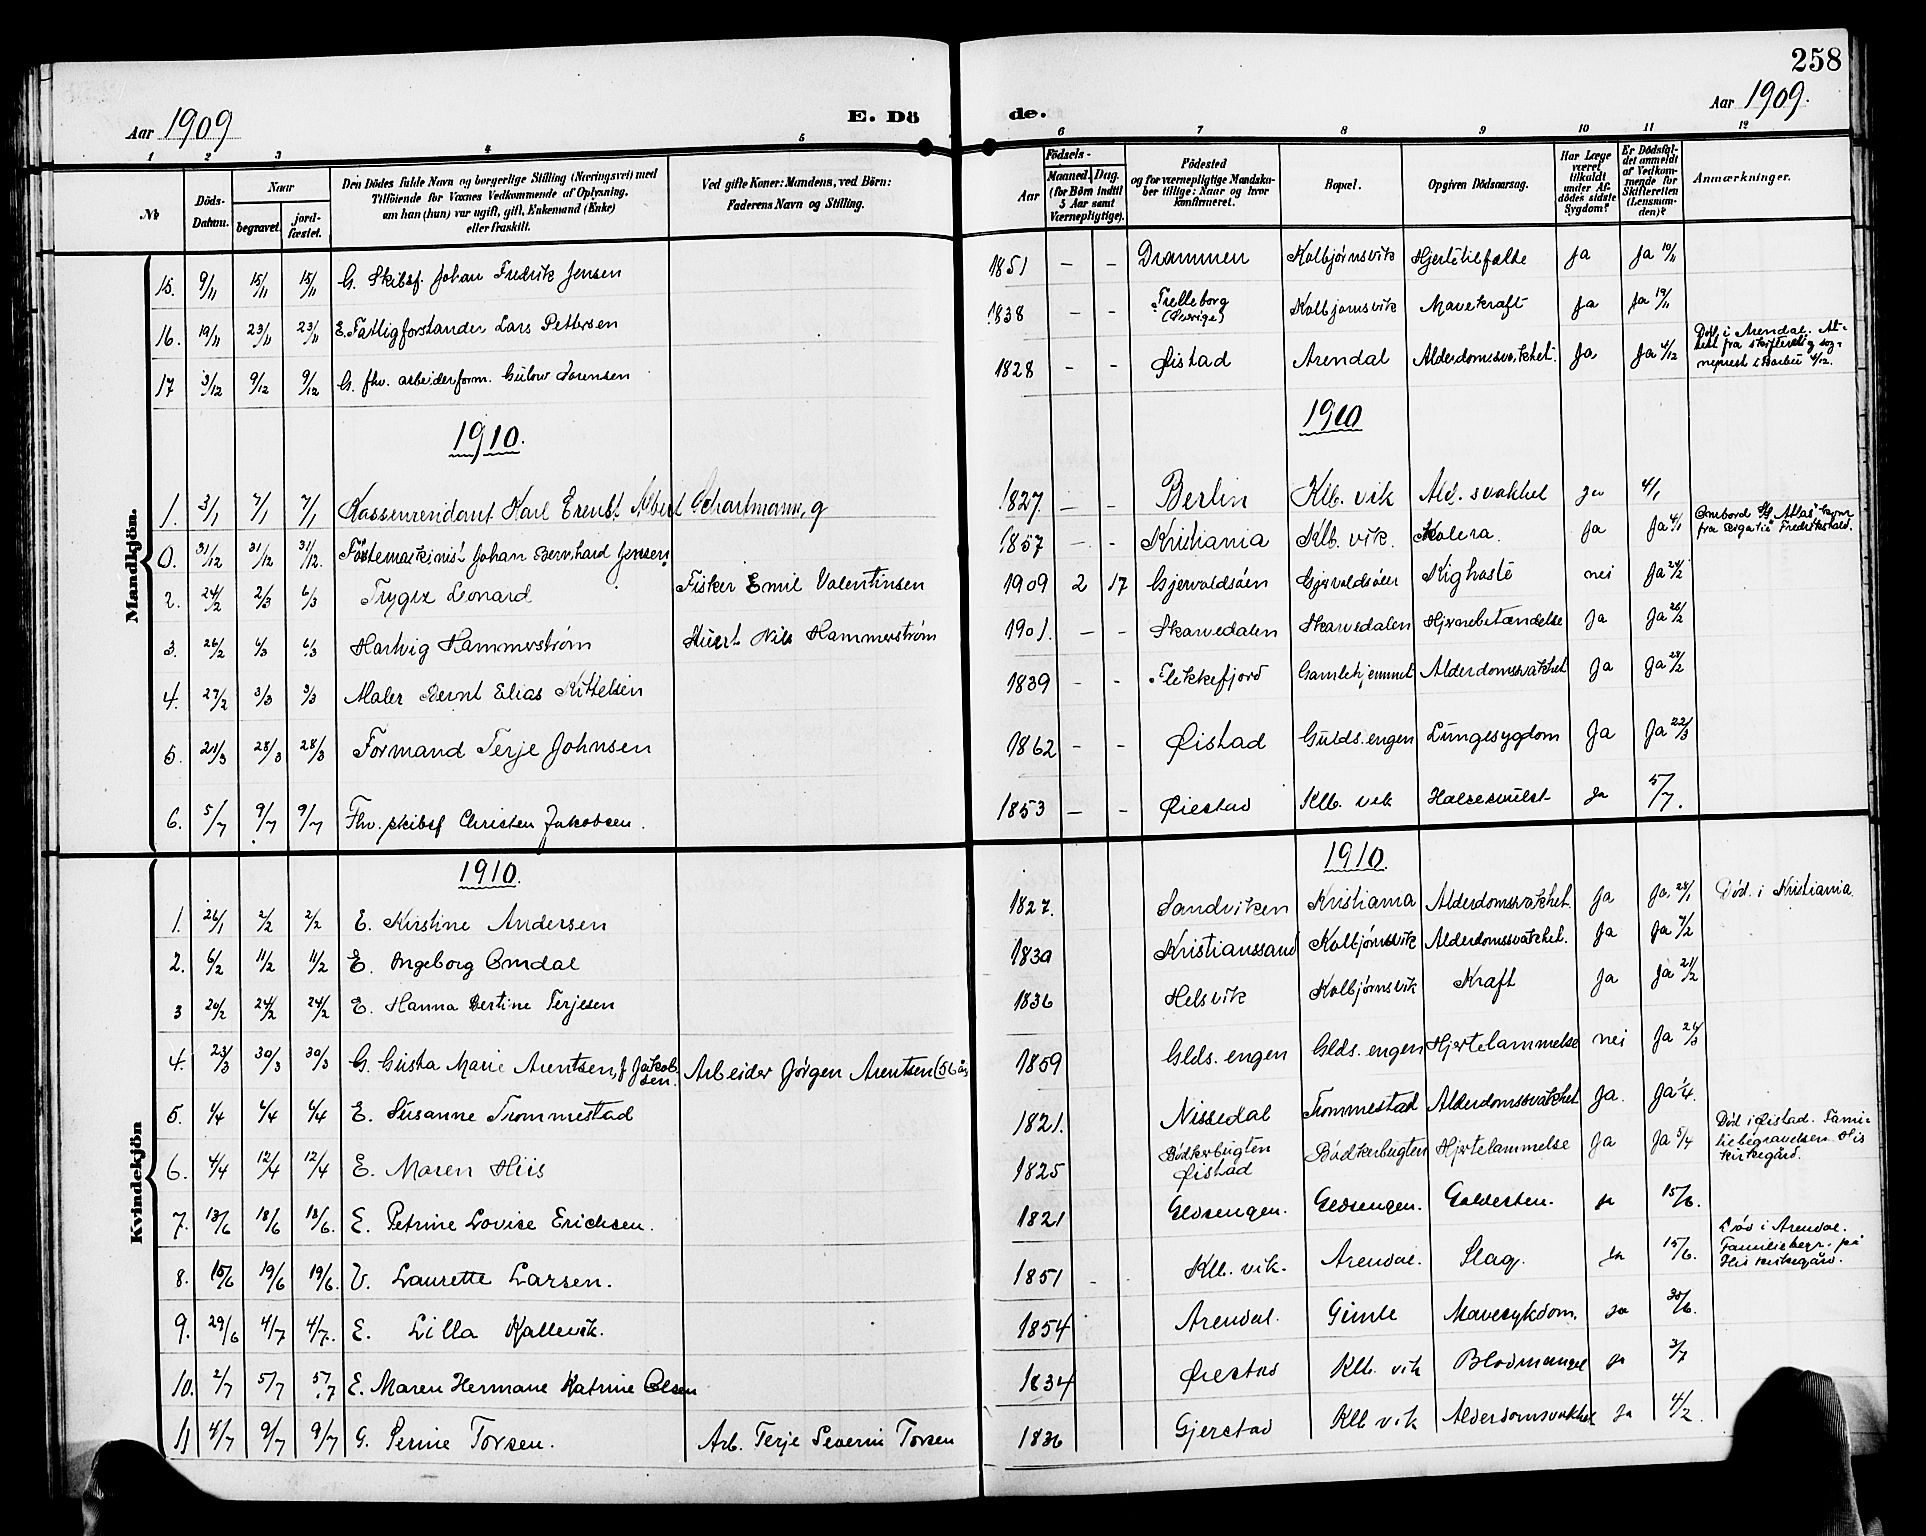 258
Aar 1909
E. Dö
de.
Aar 1909.
1 2 3 4 5 6 7 8 9 10 11 12
No
Döds-Datum.
Naar
begravet.
jord-fæstet.
Den Dödes fulde Navn og borgerlige Stilling (Næringsvei) med
Tilföiende for Voxnes Vedkommende af Oplysning.
om han (hun) var ugift, gift, Enkemand (Enke)
eller fraskilt.
Ved gifte Koner: Mandens, ved Börn:
Faderens Navn og Stilling.
Födsels-
Aar
Maaned. Dag.
(for Børn indtil
5 Aar samt
Værnepligtige).
Födested
og for værnepligtige Mandska-
ber tillige: Naar og hvor
konfirmeret.
Bopæl.
Opgiven Dödsaarsag.
Har Læge
været
tilkaldt
under Af-
dödes sidste
Sygdom?
Er Dödsfal-
det anmeldt
af Vedkom-
mende for
Skifteretten
(Lensman-
den)?
Anmærkninger.
Mandkjön.
15. 9/11 15/11 15/11 G. Skibsf. Johan Fredrik Jensen 1851 – – Drammen Kolbjørnsvik Hjertetilfælde Ja Ja 10/11
16. 19/11 23/11 23/11 E. Fattigforstander Lars Pettersen 1838 – – Trelleborg (Sverige) Kolbjørnsvik Mavekraft Ja Ja 19/11
17 3/12 9/12 9/12 G. fhv. arbeiderform. Gulow Sørensen 1828 – – Øistad Arendal Alderdomssvakhet. Ja Ja 4/12 Død i Arendal. At-
test fra skifteretten sog-
neprest i Barbu 4/12.
1910. 1910
1. 3/1 7/1 7/1 Kasserendant Karl Ernst Albert Schartmann, g 1827. – – Berlin Klb. vik Ald. svakhet ja 4/1
0. 31/12 31/12 31/12. Førstemaskinist Johan Bernhard Jensen 1857 – – Kristiania Klb. vik. Kolera. Ja Ja 4/1 Ombord S/S "Atlas" kom
fra Fredrikshald.
2. 24/2 2/3 6/3 Trygve Leonard Fisker Emil Valentinsen 1909 2 17 Gjervoldsøen Gjervoldsøen Kighoste nei Ja 24/2
3. 26/2 6/3 6/3 Hartvig Hammerstrøm Stuert Nils Hammerstrøm 1901. – – Skarvedalen Skarvedalen Hjernebetændelse Ja Ja 26/2
4. 27/2 3/3 3/3 Maler Bernt Elias Kittelsen 1839 – – Flekkefjord Gamlehjemmet Alderdomssvakhet Ja Ja 28/2
5. 21/3 28/3 28/3 Formand Terje Johnsen 1862 – – Øistad Gulds. engen Lungesygdom Ja Ja 22/3
6. 5/7 9/7 9/7 Fhv. skibsf Christen Jakobsen. 1853 – – Øiestad Klb. vik Halssvulst Ja 5/7.
Kvindekjön
1910. 1910.
1. 26/1 2/2 2/2 E. Kirstine Andersen 1827. Sandviken Kristiania Alderdomssvakhet. Ja Ja. 28/1 Død. i Kristiania
2. 6/2 11/2 11/2 E. Ingeborg Omdal 1830 Kristianssand Kolbjørnsvik Alderdomssvakhet. Ja Ja 7/2
3 20/2 24/2 24/2 E. Hanna Bertine Terjesen 1836 Helsvik Kolbjørnsvik Kraft Ja Ja 21/2
4. 23/3 30/3 30/3 G. Gusta Marie Arentsen, f Jakob-
sen. Arbeider Jørgen Arentsen (56 år) 1859 Glds. engen Glds. engen Hjertelammelse nei Ja 26/3
5. 1/4 6/4 6/4 E. Susanne Trommestad 1821. Nissedal Trommestad Alderdomssvakhet Ja. Ja 1/4.
6. 4/4 12/4 12/4 E. Maren Hiis 1825 Bødkerbugten
Øistad Bødkerbugten Hjertelammelse Ja Ja 5/4 Død i Øistad. Fami-
liebegravelsen His
kirkegård.
7. 13/6 18/6 18/6. E. Petrine Lovise Erichsen. 1821 Gldsengen. Gldsengen. Galdesten. ja 15/6.
8. 15/6 19/6 19/6. U. Laurette Larsen. 1851 Klb. vik. Arendal. Slag. Ja 15/6. Død i Arendal.
Familiebegr. på
His kirkegård.
9. 29/6 4/7 4/7. E. Lilla Kallevik. 1854 Arendal. Gimle Mavesykdom. ja 30/6.
10. 2/7 5/7 5/7 E. Maren Hermane Katrine Olsen 1834 Øiestad Klb. vik Blodmangel ja 3/7
11 4/7 9/7 9/7 G. Perine Torsen. Arb. Terje Severin Torsen 1836 Gjerstad Klb vik Alderdomsvakhet ja 4/2.